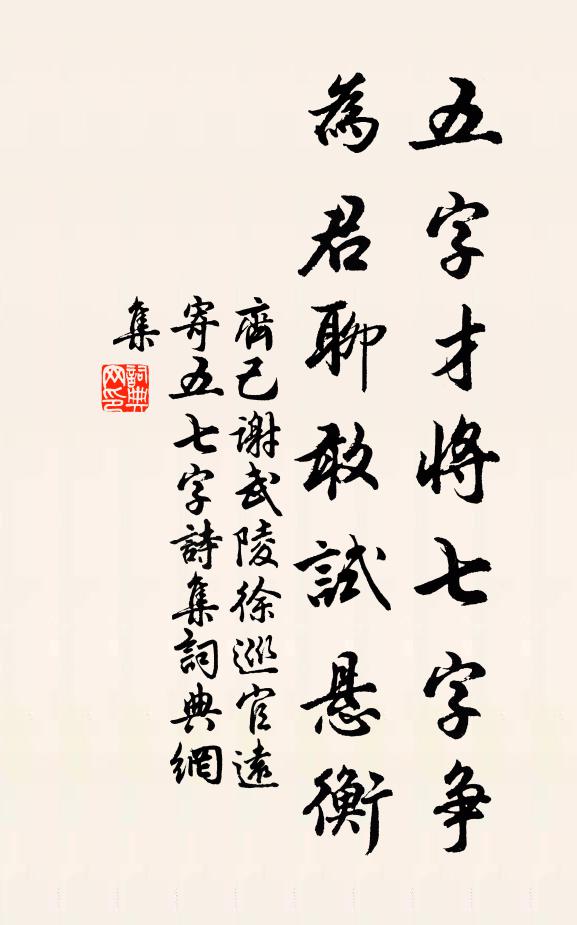 五字才將七字争
為君聊敢試懸衡
齊己謝武陵徐巡官遠
寄五七字詩集詞典網
集
詞典网印